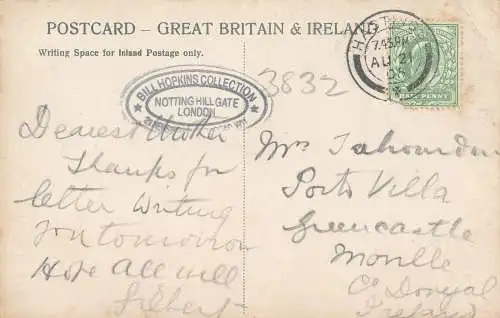 POSTCARD – GREAT BRITAIN & IRELAND
Writing Space for Inland Postage only.
HAST
7.45 PM
AU 21
HALFPENNY
BILL HOPKINS COLLECTION
NOTTING HILL GATE
LONDON
3832
Dearest Mother
Thanks for
letter writing
you tomorrow
Hope all well
Gilbert
Mrs
Porto Villa
Greencastle
Moville
Co Donegal
Ireland